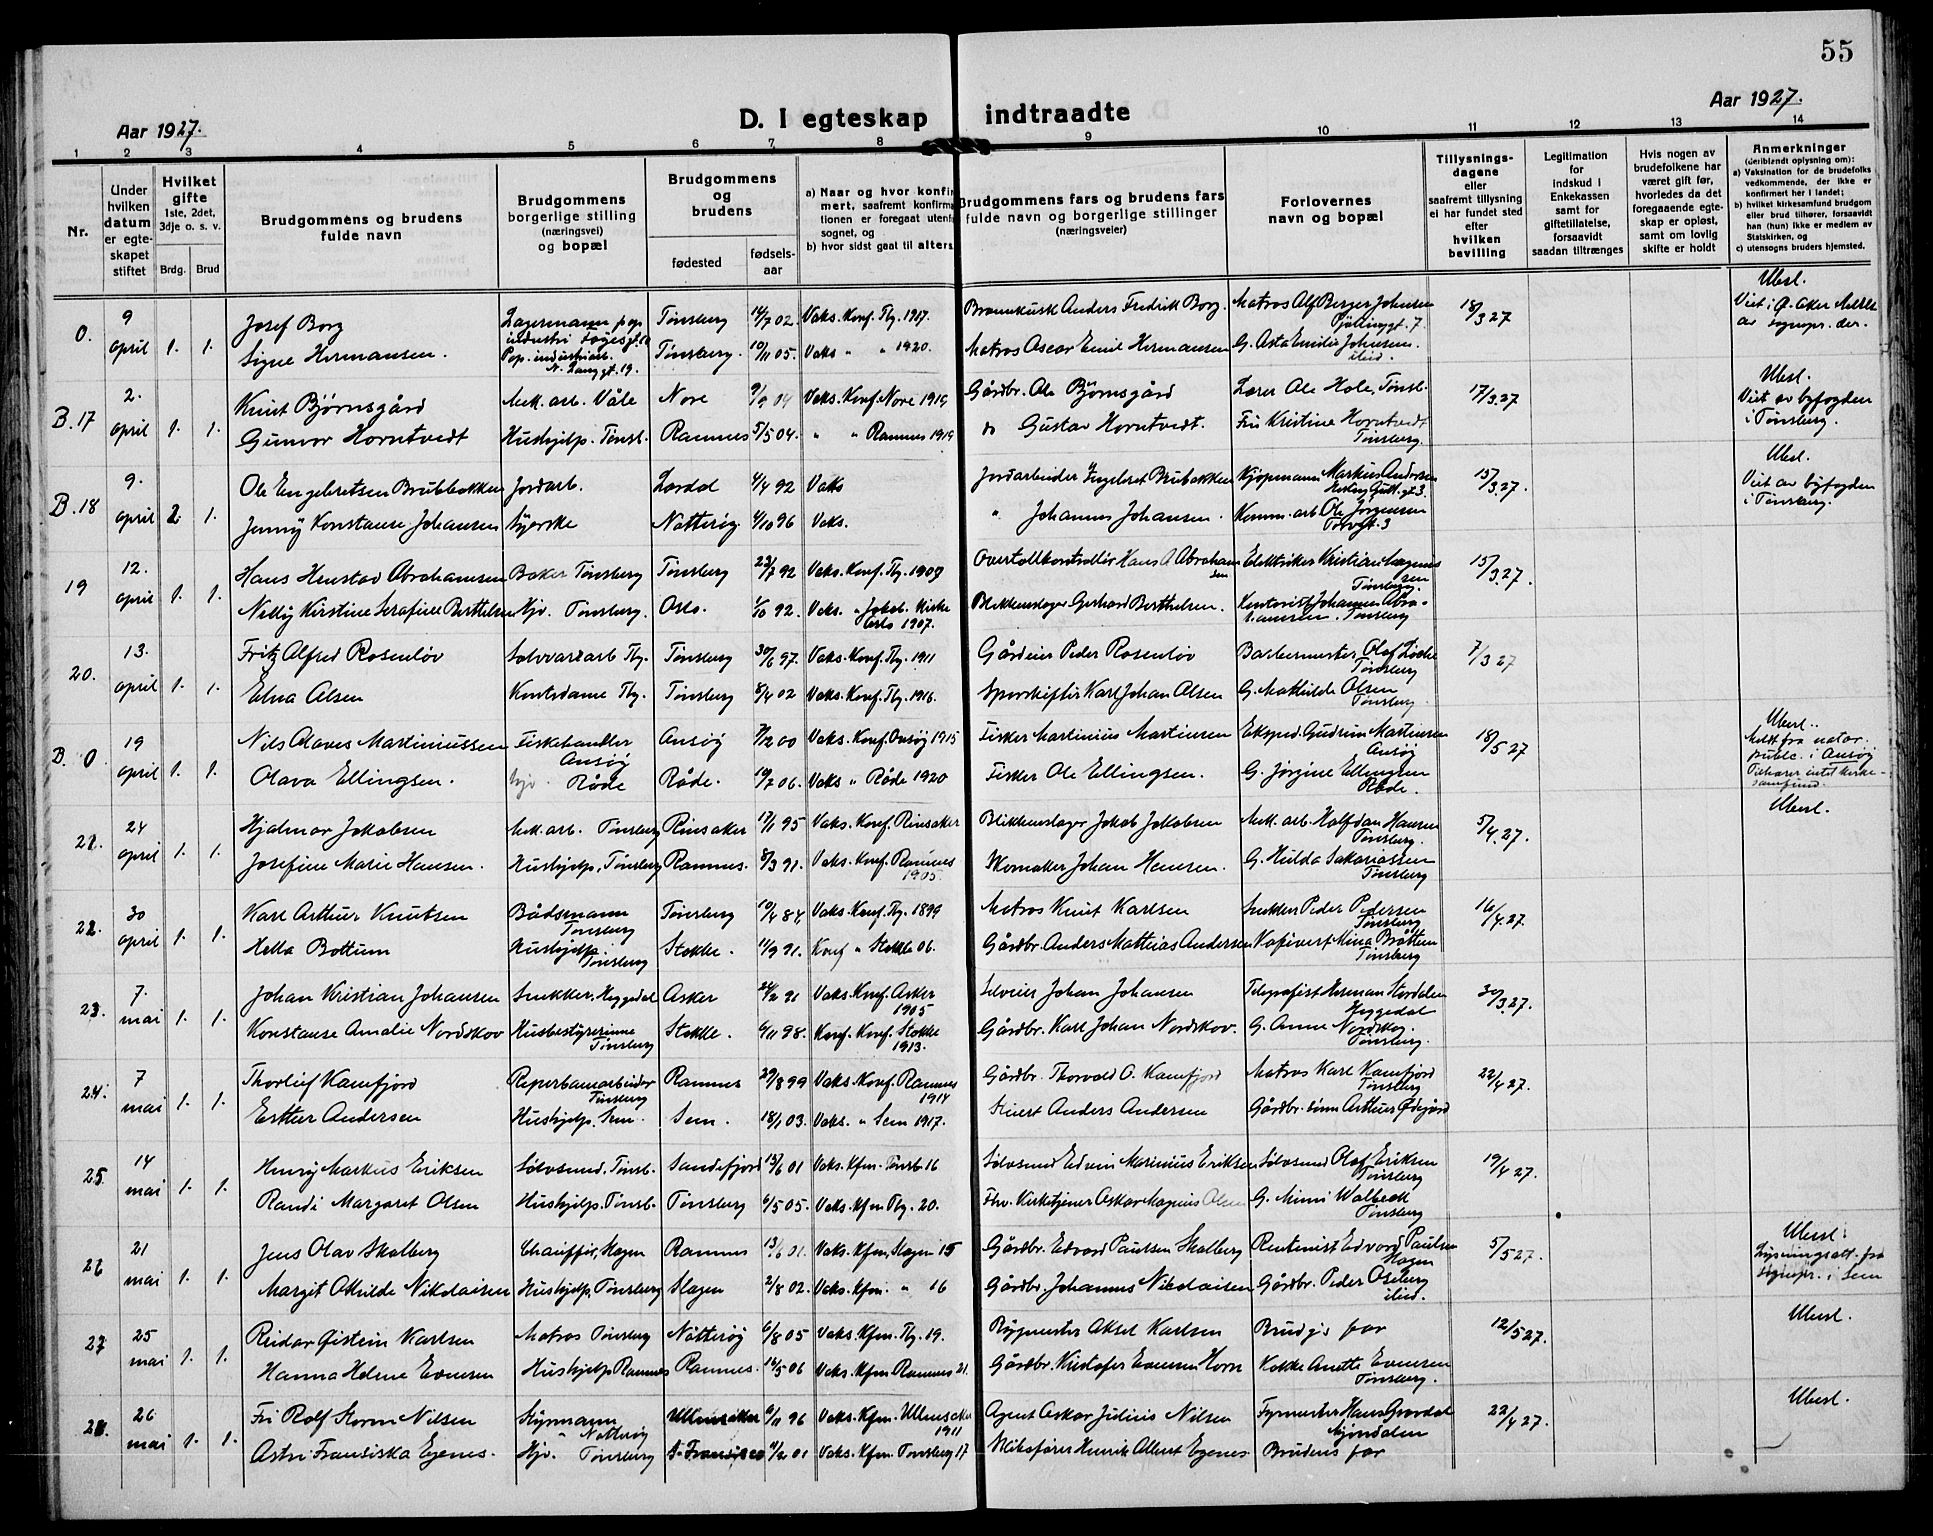 55
Aar 1927.
D. I egteskap indtraadte
Aar 1927.
1 2 3 4 5 6 7 8 9 10 11 12 13 14
Nr.
Under hvilken datum er egteskapet stiftet
Hvilket gifte
1ste, 2det, 3dje o. s. v.
Brdg. Brud
Brudgommens og brudens fulde navn
Brudgommens borgerlige stilling (næringsvei) og bopæl
Brudgommens og brudens
fødested
fødsels-aar
a) Naar og hvor konfir
mert, saafremt konfirma
tionen er foregaat utenfo
sognet, og
b) hvor sidst gaat til alters
Brudgommens fars og brudens fars
fulde navn og borgerlige stillinger
(næringsveier)
Forlovernes navn og bopæl
Tillysnings-dagene eller saafremt tillysning ei har fundet sted efter hvilken bevilling
Legitimation for indskud i Enkekassen samt for giftetillatelse, forsaavidt saadan tiltrænges
Hvis nogen av brudefolkene har været gift før, hvorledes da det foregaaende egteskap er opløst, samt om lovlig skifte er holdt
Anmerkninger
(deriblandt oplysning om):
a) Vaksination for de brudefolks vedkommende, der ikke er konfirmert her i landet;
b) hvilket kirkesamfund brudgom eller brud tilhører, forsaavidt han (hun) ikke er medlem av Statskirken, og
c) utensogns bruders hjemsted.
0. 9 april 1. 1.
Josef Borg Lagermann Tønsberg 14/7 02. Vaks. Konf. Tbg. 1917. Anders Fredrik Borg. Matros Alf Berger Johnsen 18/3 27 Ubesl.
Signe Hermansen. Pap. industriarb. N. Langgt. 19. Tønsberg. 10/11 05. Vaks " " 1920. Matros Oscar Emil Hermansen G. Asta Emilie Johnsen. ibid.
B. 17 2. april 1. 1.
Knut Bjørnsgård Mek. arb. Våle Nore 9/9 04 Vaks. Konf. Nore 1919 Gårdbr. Ole Bjørnsgård Lærer Ole Hole, Tønsb. 17/3.27 Ubesl. Viet av byfogden i Tønsberg.
Gunvor Horntvedt Hushjelp. Tønsb. Ramnes 5/5 04. " " Ramnes 1919 do Gustav Horntvedt. Frk Kristine Horntvedt Tønsberg.
B. 18 9. april 2. 1.
Ole Engebretsen Brubbakken Jordarb. Lardal 4/4 92 Vaks Jordarbeider Ingebret Brubakken Kjøpmann Markus Andersen 15/3.27. Ubesl. Viet av byfogden i Tønsberg.
Jenny Konstanse Johansen Syerske Nøtterøy. 4/10 96 Vaks. " Johannes Johansen. Komm. arb Ole Jørgensen Torvgt. 3
19 12. april 1. 1.
Hans Henstav Abrahamsen Baker Tønsberg Tønsberg 23/7 92 Vaks. Konf. Tbg. 1907 Overtollkontrollør Hans A Abrahamsen Elektriker Kristian Magnussen Tønsberg. 15/3.27.
Nelly Kirstine Serafine Berthelsen Hjv. Tønsberg. Oslo. 1/10 92. Vaks. " Jakob. Kirke Oslo 1907. Blikkenslager Gerhard Berthelsen. Kontorist Johannes Abrahamsen. Tønsberg
20. 13. april 1. 1.
Fritz Alfred Rosenløv Sølvvarearb Tbg. Tønsberg 30/6 97. Vaks. Konf. Tbg. 1911 Gårdeier Peder Rosenløv Barbermester Olaf Løche Tønsberg 7/3 27
Elna Olsen Kontsdame Tbg. Tønsberg 8/4 02 Vaks. Konf. Tbg. 1916. Sporskifter Karl Johan Olsen G. Mathilde Olsen Tønsberg
B. 0 19 april 1. 1.
Nils Olaves Martiniussen Fiskehandler Onsøy Onsøy 7/12 00 Vaks. Konf. Onsøy 1915 Fisker Martinius Martinsen Eksped. Gudrun Martinsen Onsøy 18/5 27 Ubesl. Meldt fra notar. public. i Onsøy Tilhører intet kirkesamfund.
Olava Ellingsen. hjv. Råde Råde. 19/7 06. Vaks " Råde 1920 Fisker Ole Ellingsen. G. Jørgine Ellingsen Råde.
21. 24 april 1. 1.
Hjalmar Jakobsen Mek. arb. Tønsberg Rinsaker 17/11 95 Vaks. Konf. Rinsaker Blikkenslager Jakob Jakobsen Mek. arb. Halfdan Hansen Tønsberg. 5/4.27. Ubesl.
Josefine Marie Hansen. Hushjelp, Tønsberg Ramnes. 8/3 91. Vaks. Konf. Ramnes 1905. Skomaker Johan Hansen. G. Hulda Sakariassen Tønsberg
22. 30 april 1. 1.
Karl Arthur Knutsen Bådsmann Tønsberg Tønsberg 10/4 84 Vaks. Konf. Tbg. 1899 Matros Knut Karlsen Snekker Peder Pedersen Tønsberg 16/4.27.
Hella Bottum Hushjelp. Tønsberg Stokke. 11/9 91. Konf " Stokke 06. Gårdbr. Anders Mathias Andersen Kafévert Mina Bråtten Tønsberg
23. 7. mai 1. 1.
Johan Kristian Johansen Snekker, Heggedal Asker 24/2 91 Vaks. Konf. Asker 1905 Selveier Johan Johansen Telegrafist Herman Stordalen Heggedal 30/3.27.
Konstanse Amalie Nordskov Husbestyrerinne Tønsberg Stokke. 6/11 98. Konf. Stokke 1913. Gårdbr. Karl Johan Nordskov. G. Anne Nordskog. Tønsberg.
24. 7 mai 1. 1.
Thorleif Kamfjord Reperbanearbeider Tønsberg Ramnes 29/8 99 Vaks. Konf. Ramnes 1914 Gårdbr. Thorvald O. Kamfjord Matros Karl Kamfjord Tønsberg 22/4 27.
Esther Andersen Hushjelp, Sem. Sem. 18/1 03. Vaks. " Sem 1917. Anders Andersen Gårdbr. sønn Arthur Ødegård
25. 14 mai 1. 1.
Henry Markus Eriksen Sølvsmed, Tønsb. Sandefjord 13/6 01 Vaks. Kfm. Tønsb 16 Sølvsmed Edvin Marinius Eriksen Sølvsmed Olaf Eriksen Tønsberg 19/4 27.
Randi Margaret Olsen Hushjelp. Tønsb. Tønsberg 6/5 05. Vaks. Kfm Tbg. 20. Fhv. Kirketjener Oskar Magnus Olsen G. Mimi Walbeck Tønsberg
26 21 mai 1. 1.
Jens Olav Skalberg Chauffør, Slagen Ramnes 13/6 01. Vaks. Kfm, Slagen 15 Gårdbr. Edvard Paulsen Skalberg Rentenist Edvard Paulsen Slagen 5/5 27. Ubesl. Lysningsatt. fra sognepr. i Sem
Margit Othilde Nikolaisen Hushjelp, Tønsberg Slagen 2/8 02. Vaks. Kfm. " 16 Gårdbr. Johannes Nikolaisen Gårdbr. Peder Oseberg ibid.
27 25 mai 1. 1.
Reidar Øistein Karlsen Matros Tønsberg Nøtterøy 6/8 05 Vaks. Kfm. Tbg. 19. Rygmester Aksel Karlsen Brudgs far 12/5 27. Ubesl.
Hanna Helene Evensen Hushjelp Ramnes Ramnes. 14/5 06 Vaks. Kfm Ramnes 21. Gårdbr. Kristofer Evensen Horn Kokke Anette Evensen Tønsberg.
28. 26 mai 1. 1.
Rolf Storm Nilsen Styrmann Nøtterøy Ullensaker 6/11 96 Vaks. Kfm. Ullensaker 1911 Agent Oskar Julius Nilsen Fyrmester Hans Grordal Mjøndalen 22/4 27. Ubesl.
Astri Fransiska Egenes. Hjv. Tønsberg S. Fransisco 11/2 01 Vaks. Kfm. Tønsberg 17 Henrik Albert Egenes Brudens far